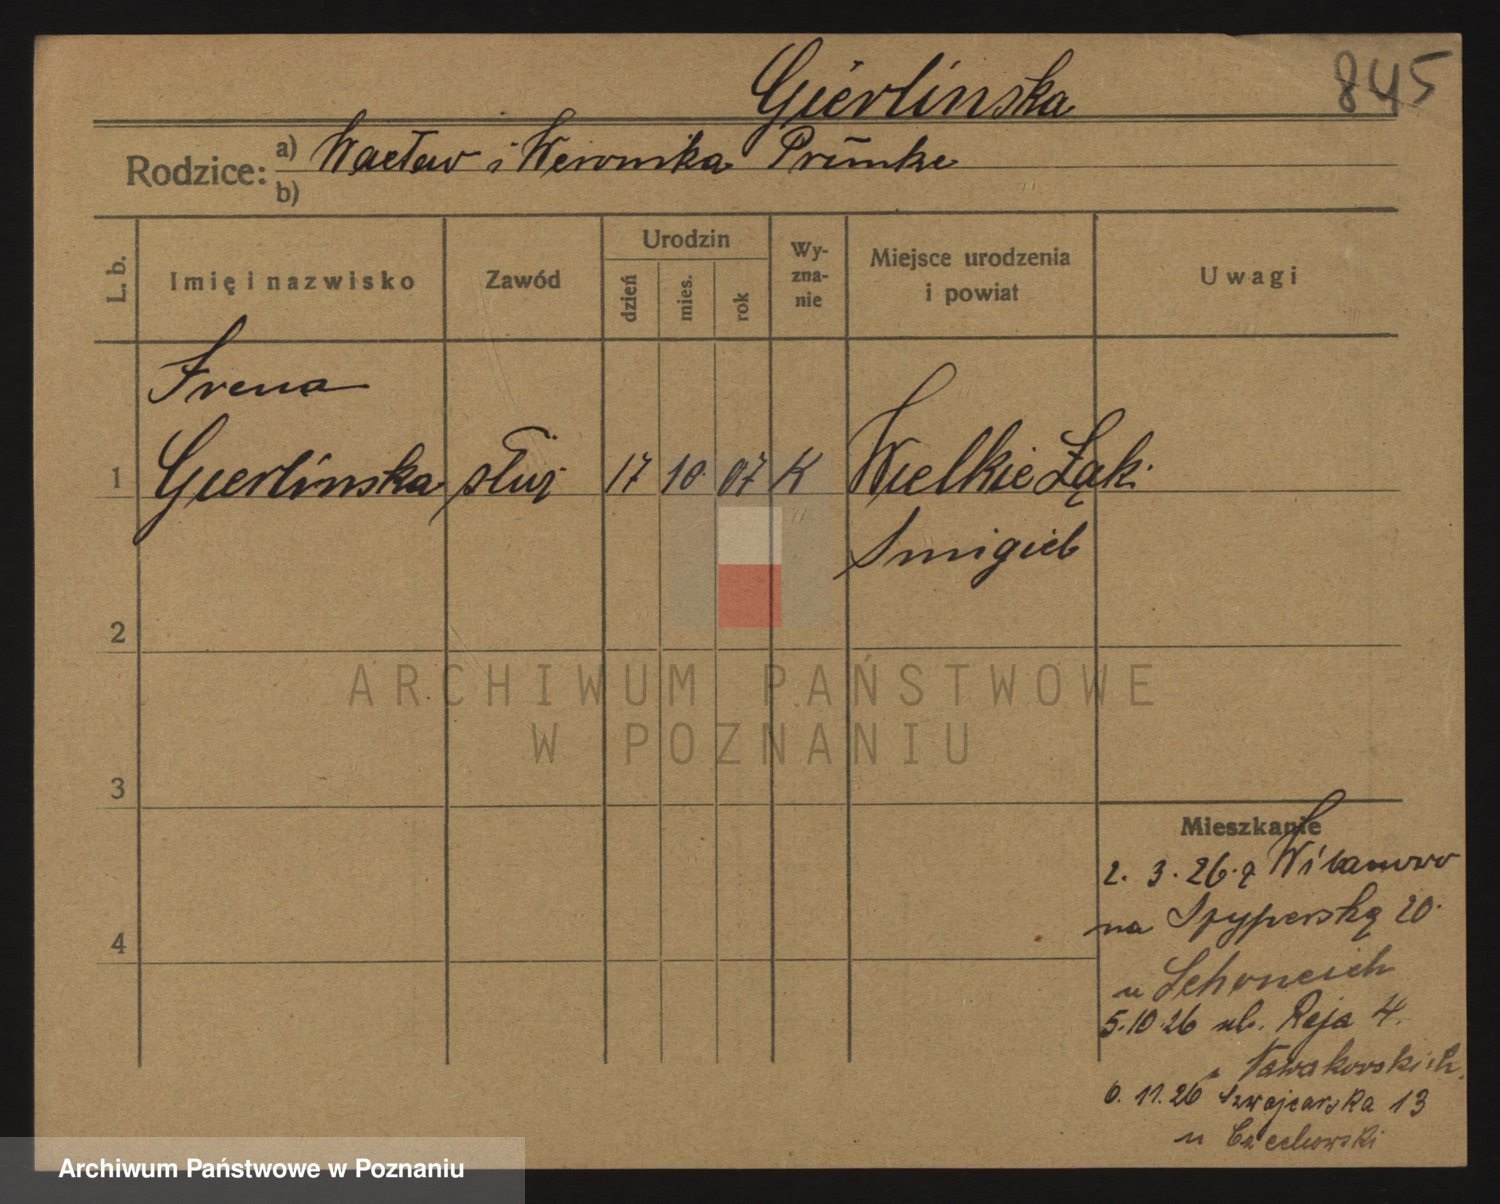 Gierlinska
845
Rodzice: a) Wacław i Weronika Primke
b)
L. b. Imię i nazwisko Zawód Urodzin dzień mies. rok Wy-zna-nie Miejsce urodzenia i powiat Uwagi
Irena
1 Gierlinska służ 17 10 07 K Wielkie Łąki
Smigiel
2
ARCHIWUM PAŃSTWOWE
W POZNANIU
3
Mieszkanie
2. 3. 26. z
na 20.
4
u
5.10 26 ul. Reja 4.
11. 26 Szwajcarska 13
u Czechowski
Archiwum Państwowe w Poznaniu